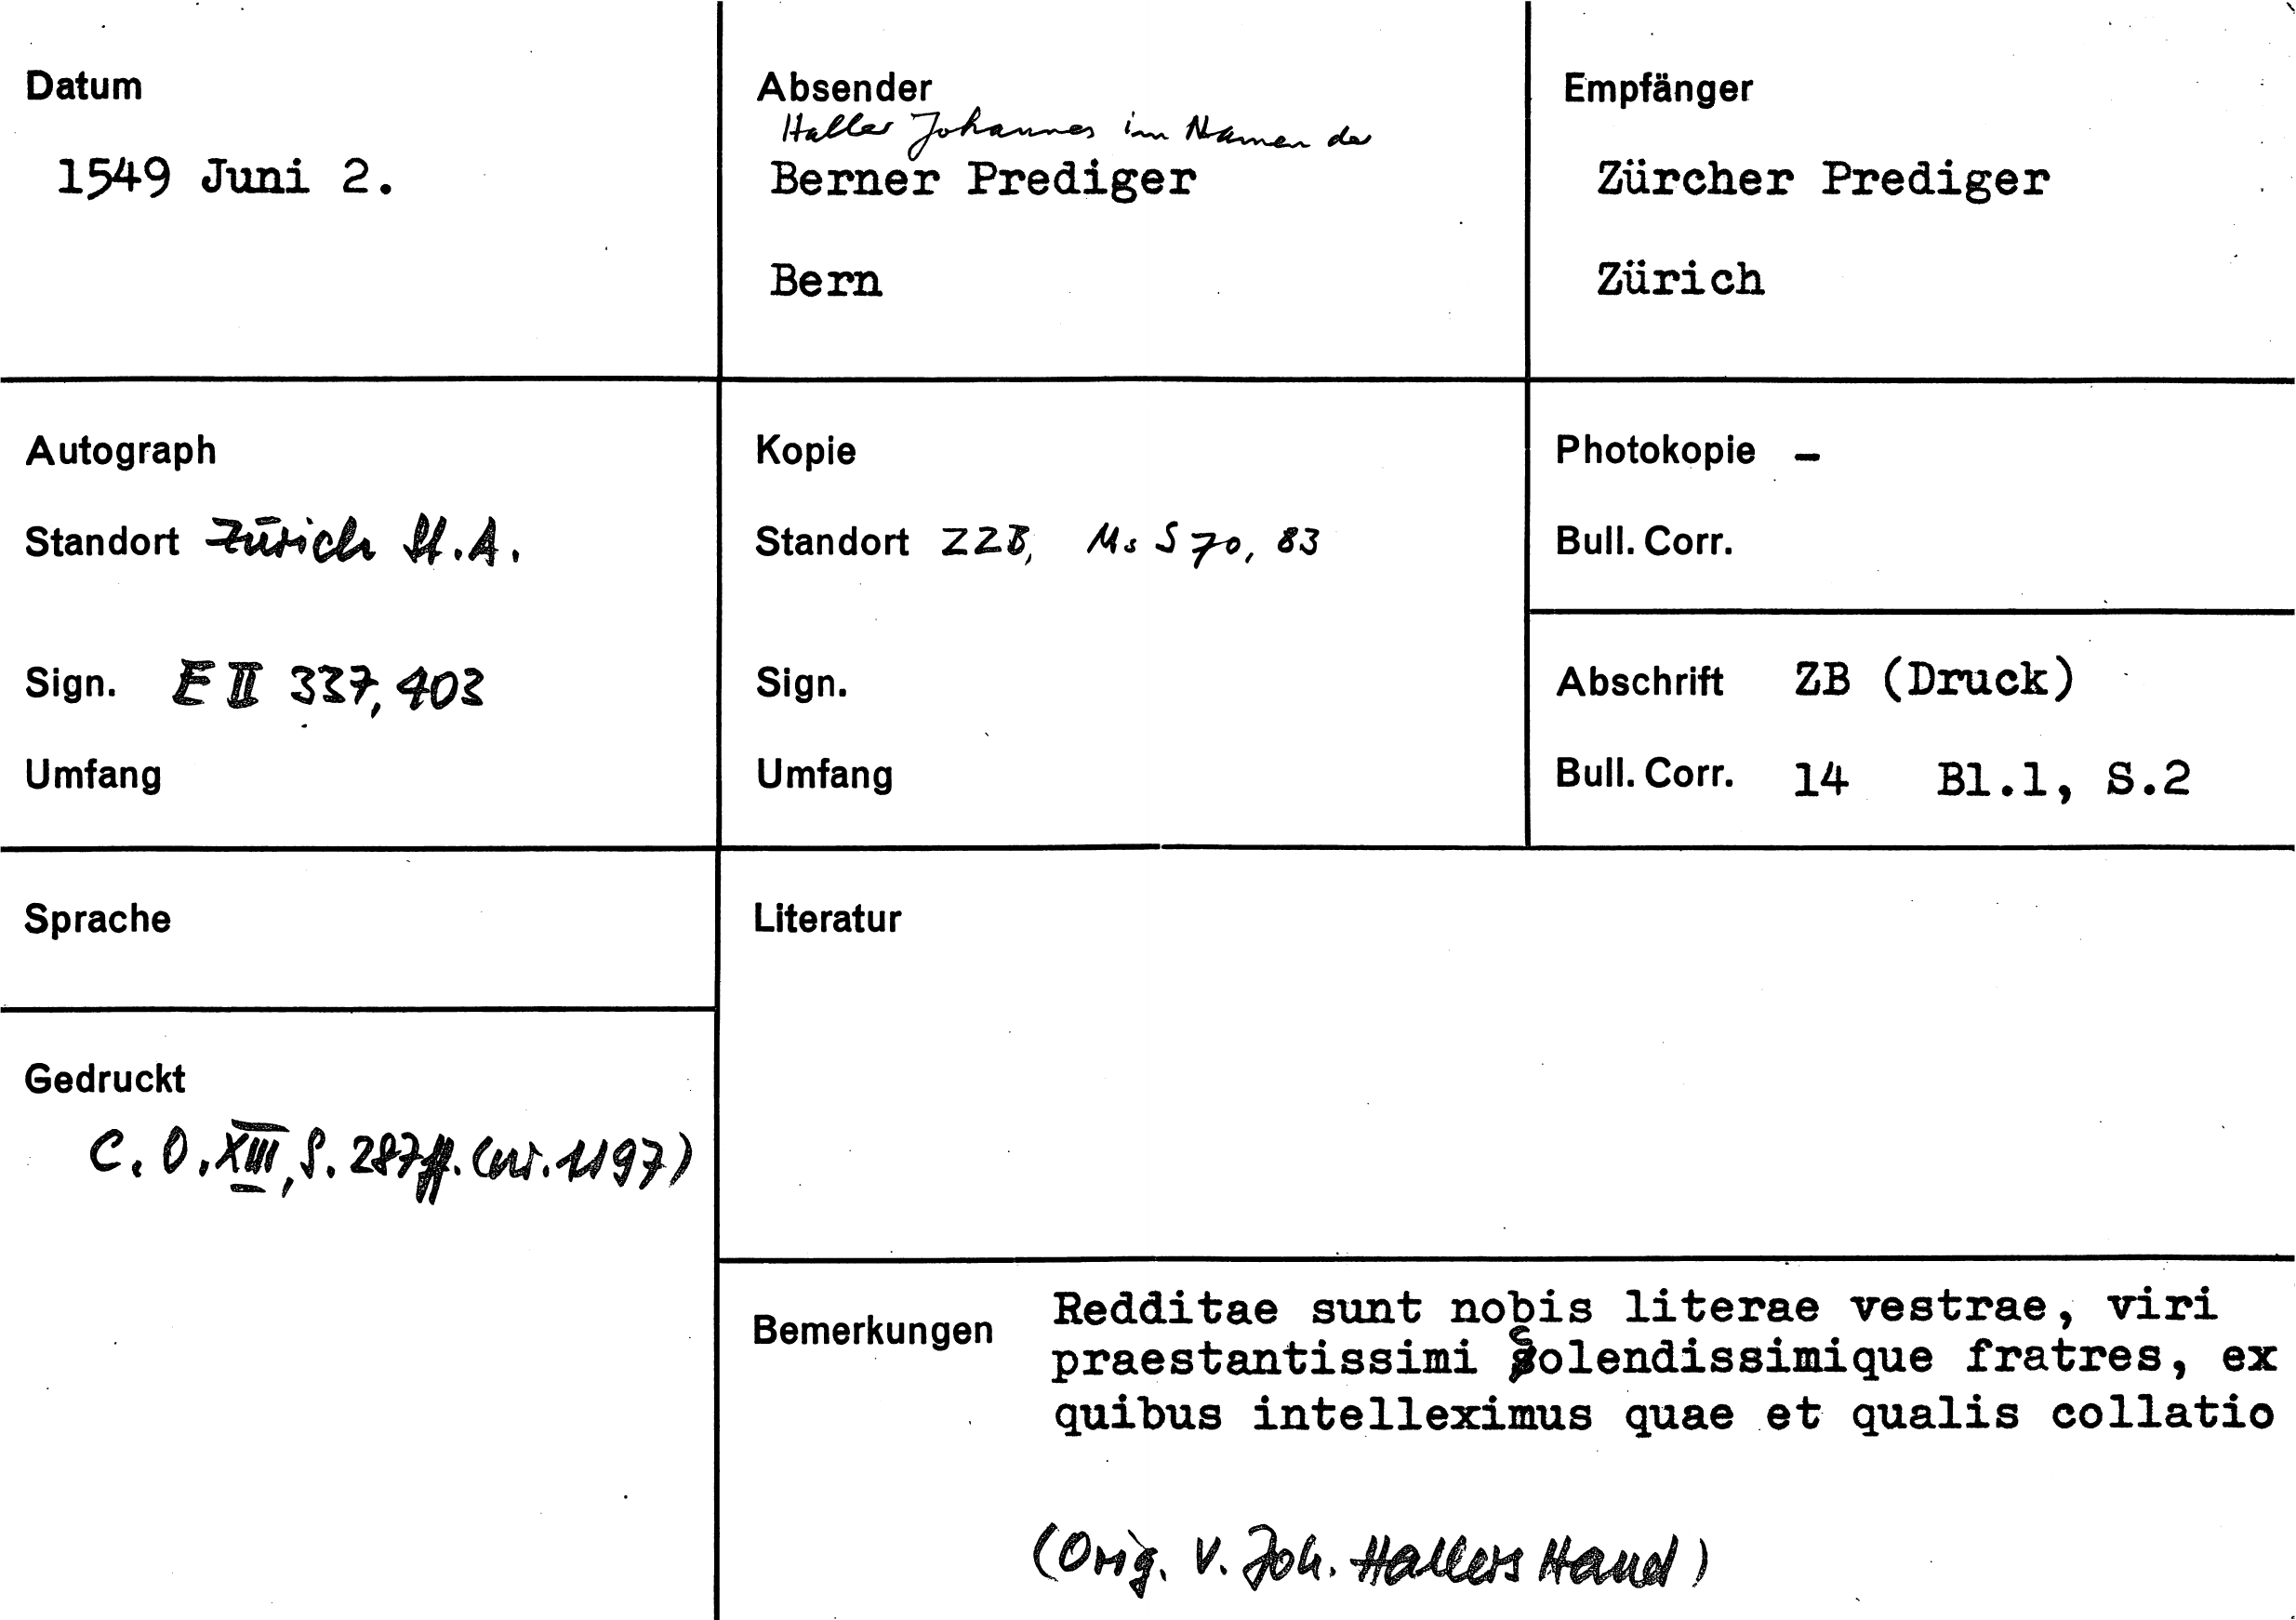 Datum
1549 Juni 2.
Absender
Haller Johannes im Namen der
Berner Prediger
Bern
Empfänger
Zürcher Prediger
Zürich
Autograph
Standort Zürich St.A.
Sign. E II 337, 403
Umfang
Kopie
Standort ZZB, Ms S 70, 83
Sign.
Umfang
Photokopie –
Bull. Corr.
Abschrift ZB (Druck)
Bull. Corr. 14 Bl.1, S.2
Sprache
Gedruckt
C.O. XIII, S. 287ff. (nr. 1197)
Literatur
Bemerkungen
Redditae sunt nobis literae vestrae, viri
praestantissimi colendissimique fratres, ex
quibus intelleximus quae et qualis collatio
(Orig. v. Joh. Hallers Hand)